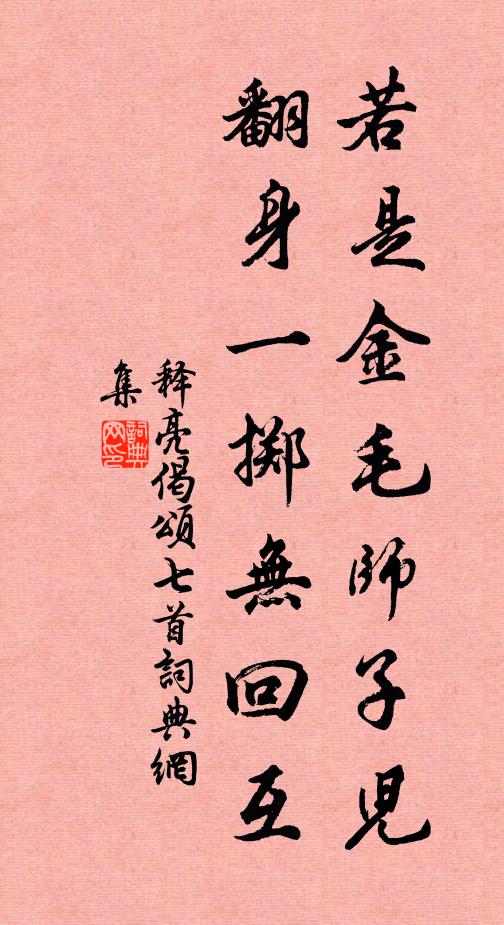 若是金毛師子児
翻身一擲無回互
释亮偈頌七首詞典網
集
詞典网印